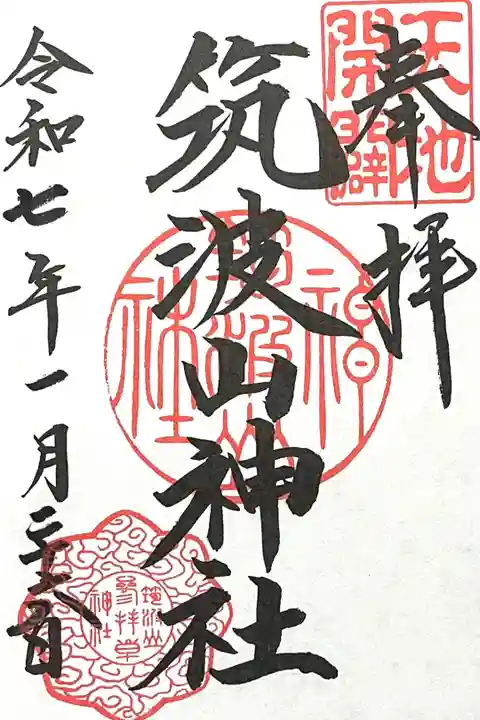 奉拝
天地
開闢
筑波山神社
神
筑波山
社
令和七年一月二十六日
筑波山
參拝章
神社